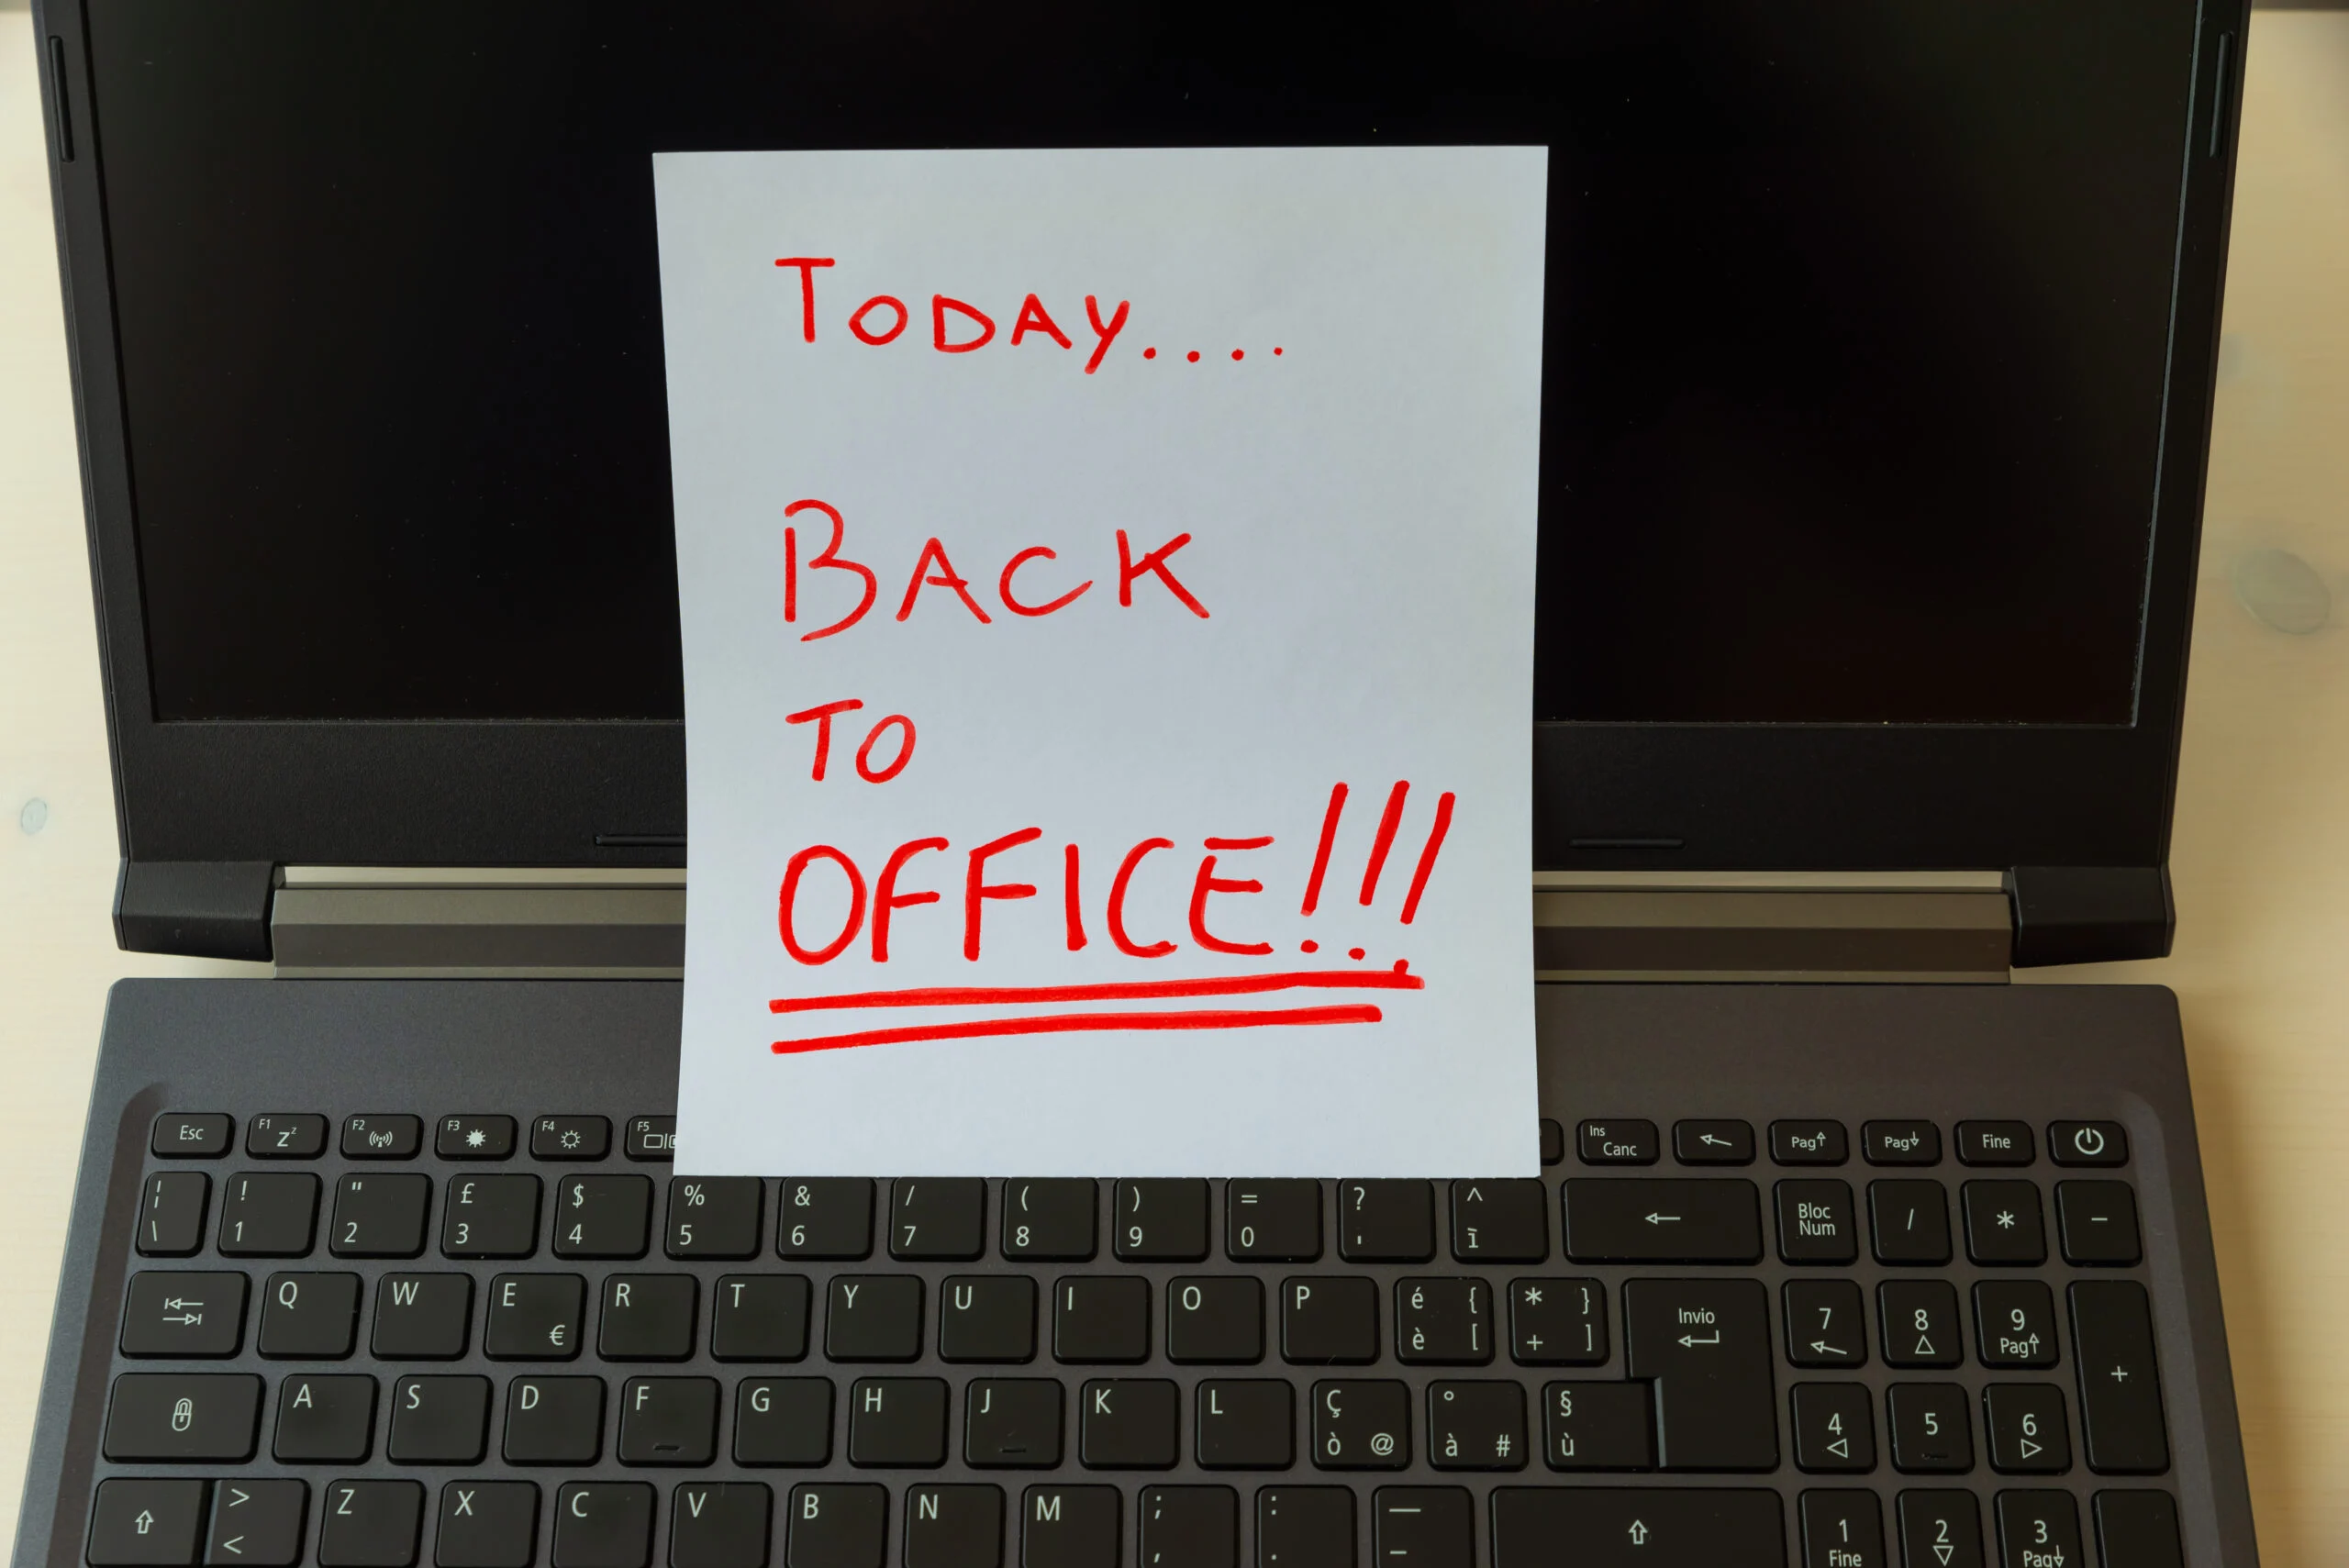 Today....
Back
to
OFFICE!!!
Esc F1 Zz F2 F3 F4 F5 Ins Canc Pag Pag Fine
¦ \ ! 1 " 2 £ 3 $ 4 % 5 & 6 / 7 ( 8 ) 9 = 0 ? ' ^ ì ← Bloc Num / * -
Q W E € R T Y U I O P é è { [ * + } ] Invio 7 8 9 Pag +
A S D F G H J K L ç ò @ ° à # § ù 4 5 6
> < Z X C V B N M ; , : . _ - 1 Fine 2 3 Pag